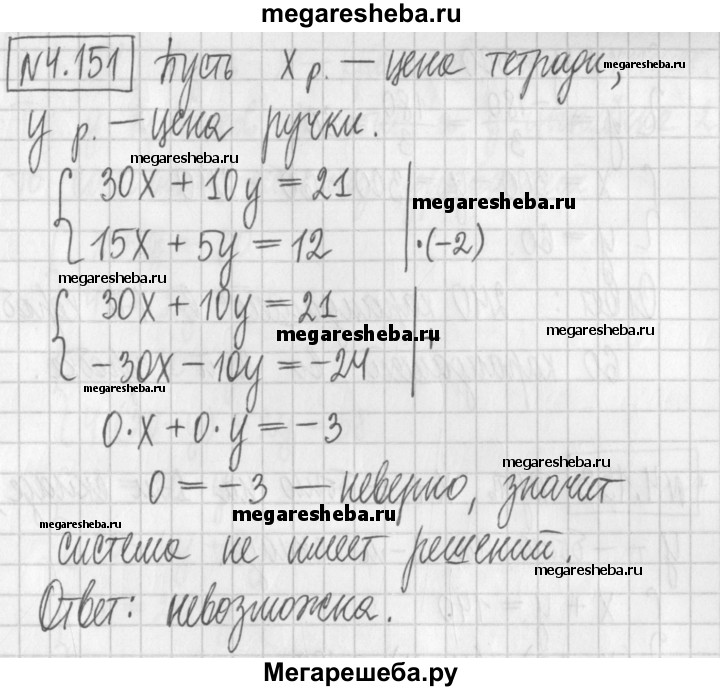 megaresheba.ru
№4.151 Пусть x р. — цена тетради,
megaresheba.ru
y р. — цена ручки.
megaresheba.ru
30x + 10y = 21
megaresheba.ru
15x + 5y = 12 | ·(-2)
megaresheba.ru
30x + 10y = 21
megaresheba.ru
megaresheba.ru
-30x - 10y = -24 | +
megaresheba.ru
0·x + 0·y = -3
megaresheba.ru
0 = -3 — неверно, значит
megaresheba.ru
megaresheba.ru
megaresheba.ru
система не имеет решений.
megaresheba.ru
Ответ: невозможна.
Мегарешеба.ру